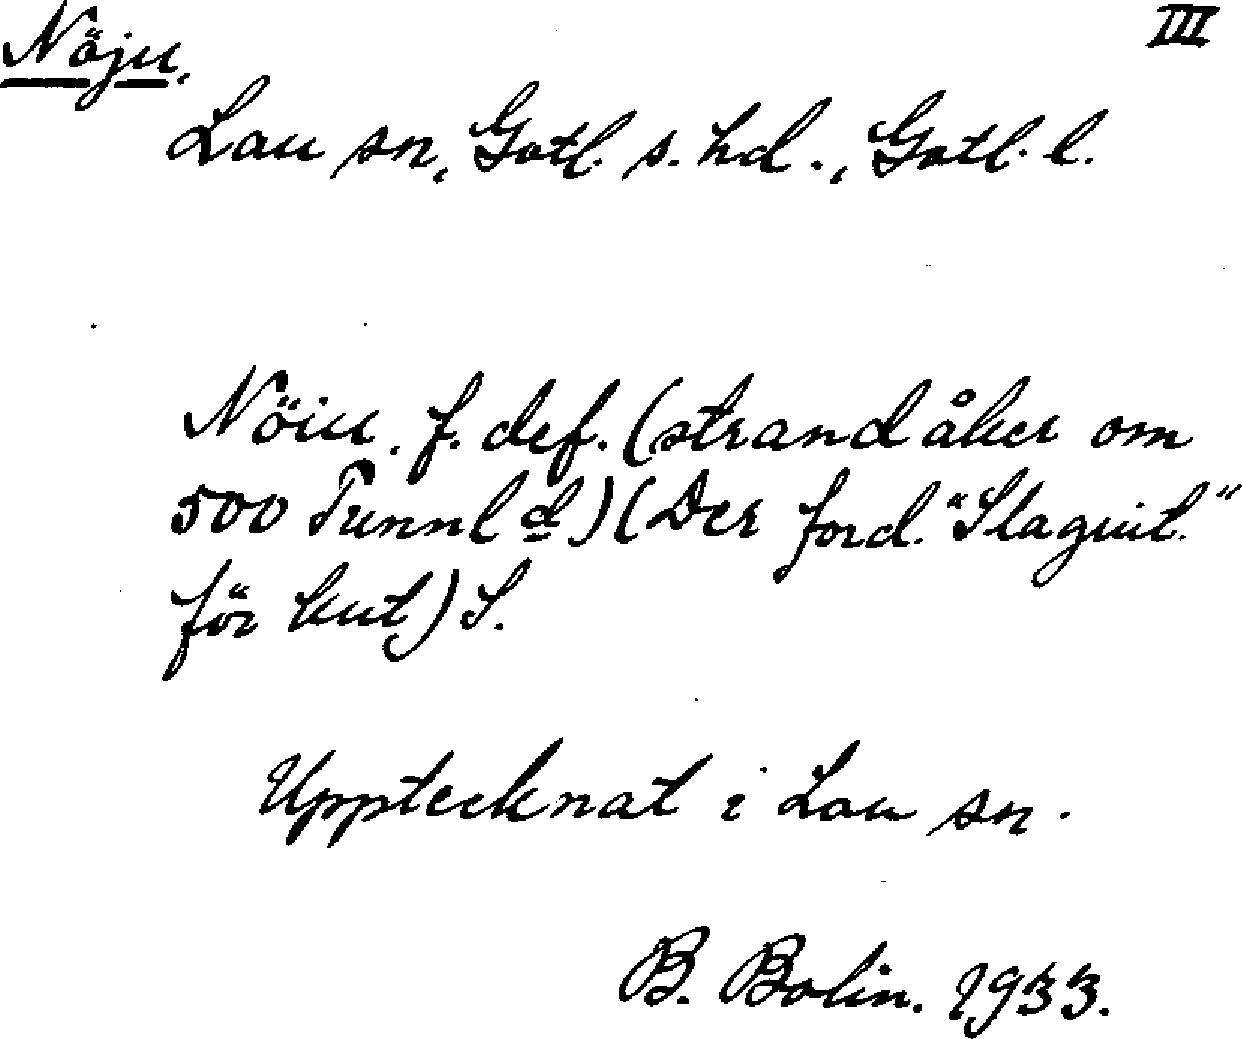 Nöju.
III
Lau sn, Gotl. s. hd., Gotl. l.
Nöiu. f. def. (strandåker om
500 Tunnld) (Der ford. "Slaguit."
för kut) S.
Upptecknat i Lau sn.
B. Bolin. 1933.